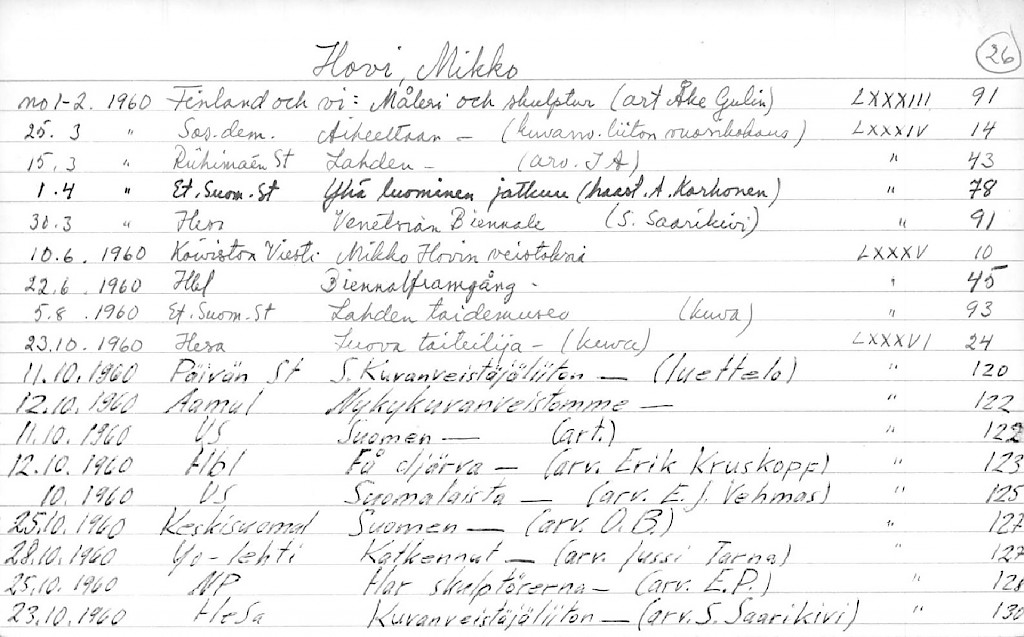 26
Hovi, Mikko
no 1-2. 1960 Finland och vi: Måleri och skulptur (art Åke Gulin) LXXXIII 91
25. 3 " Sos.dem. Aiheettaan - (kuvanv.liiton vuosikokous) LXXXIV 14
15. 3 " Riihimäen St Lahden - (arv. I A) " 43
1. 4 " Et. Suom. St Yhä luominen jatkuu (haast. A. Korhonen) " 78
30. 3 " Hesa Venetsian Biennale (S. Saarikivi) " 91
10. 6. 1960 Koiviston Viesti Mikko Hovin veistoksia LXXXV 10
22. 6. 1960 Hbl Biennalframgång - " 45
5. 8. 1960 Et. Suom. St Lahden taidemuseo (kuva) " 93
23. 10. 1960 Hesa Luova taiteilija - (kuva) LXXXVI 24
11. 10. 1960 Päivän St S. Kuvanveistäjäliiton — (luettelo) " 120
12. 10. 1960 Aamul Nykykuvanveistomme — " 122
11. 10. 1960 US Suomen — (art.) " 122
12. 10. 1960 Hbl Få djärva — (arv. Erik Kruskopf) " 123
10. 1960 US Suomalaista — (arv. E. J. Vehmas) " 125
25. 10. 1960 Keskisuomal Suomen — (arv. O. B.) " 127
28. 10. 1960 Yo-lehti Katkennut — (arv. Jussi Tarna) " 127
25. 10. 1960 NP Har skulptörerna — (arv. E.P.) " 128
23. 10. 1960 HeSa Kuvanveistäjäliiton — (arv. S. Saarikivi) " 130